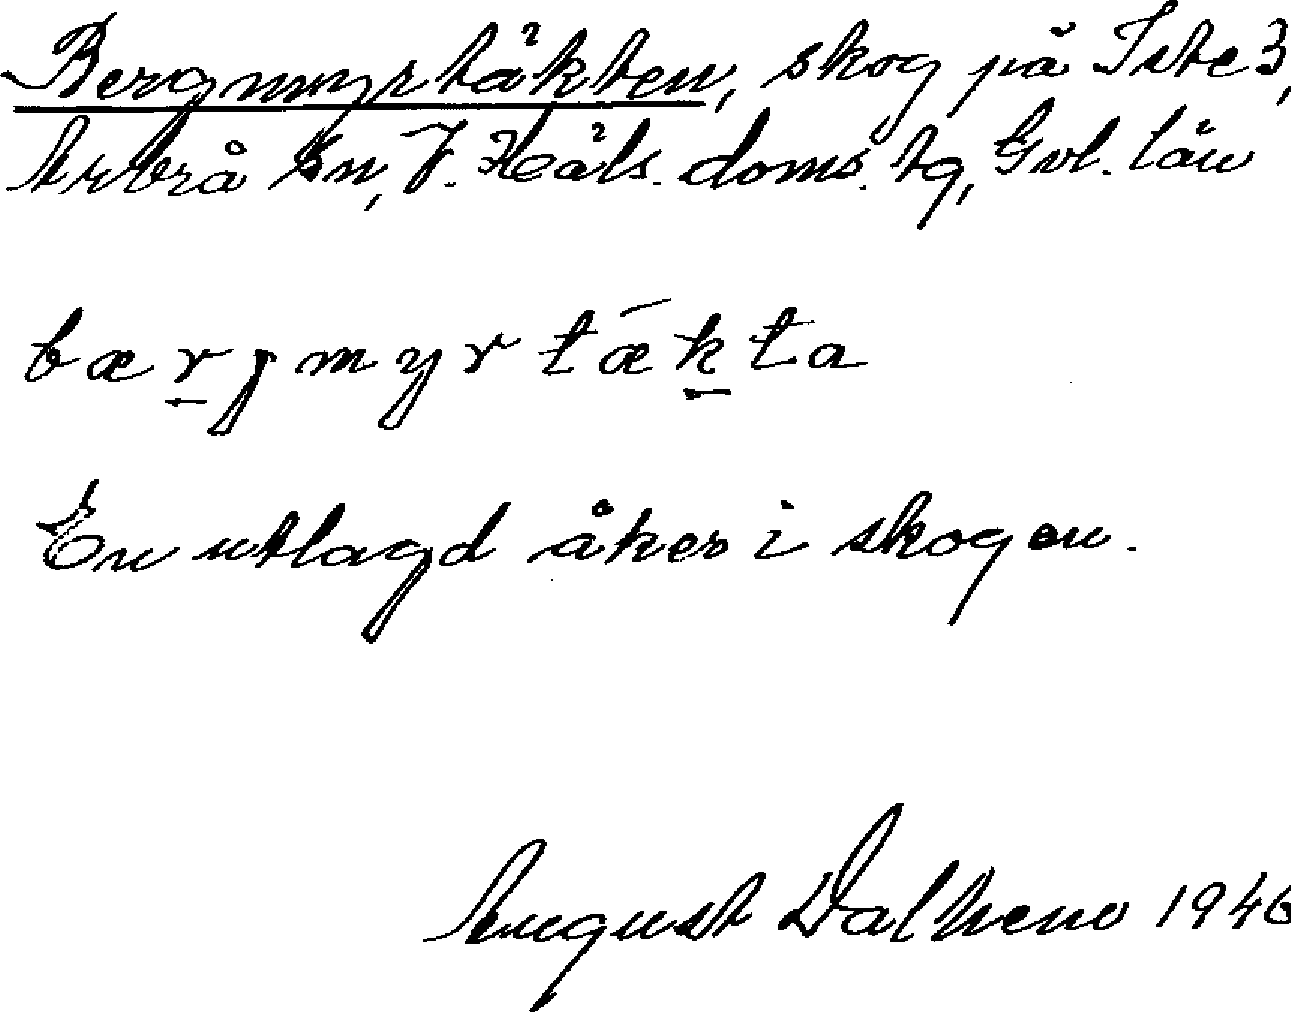 Bergmyrtäkten, skog på Iste 3,
Arbrå sn, V. Häls. doms. tg, Gvl. län
bærjmyrtǽkta
En utlagd åker i skogen.
August Dalhem 1946